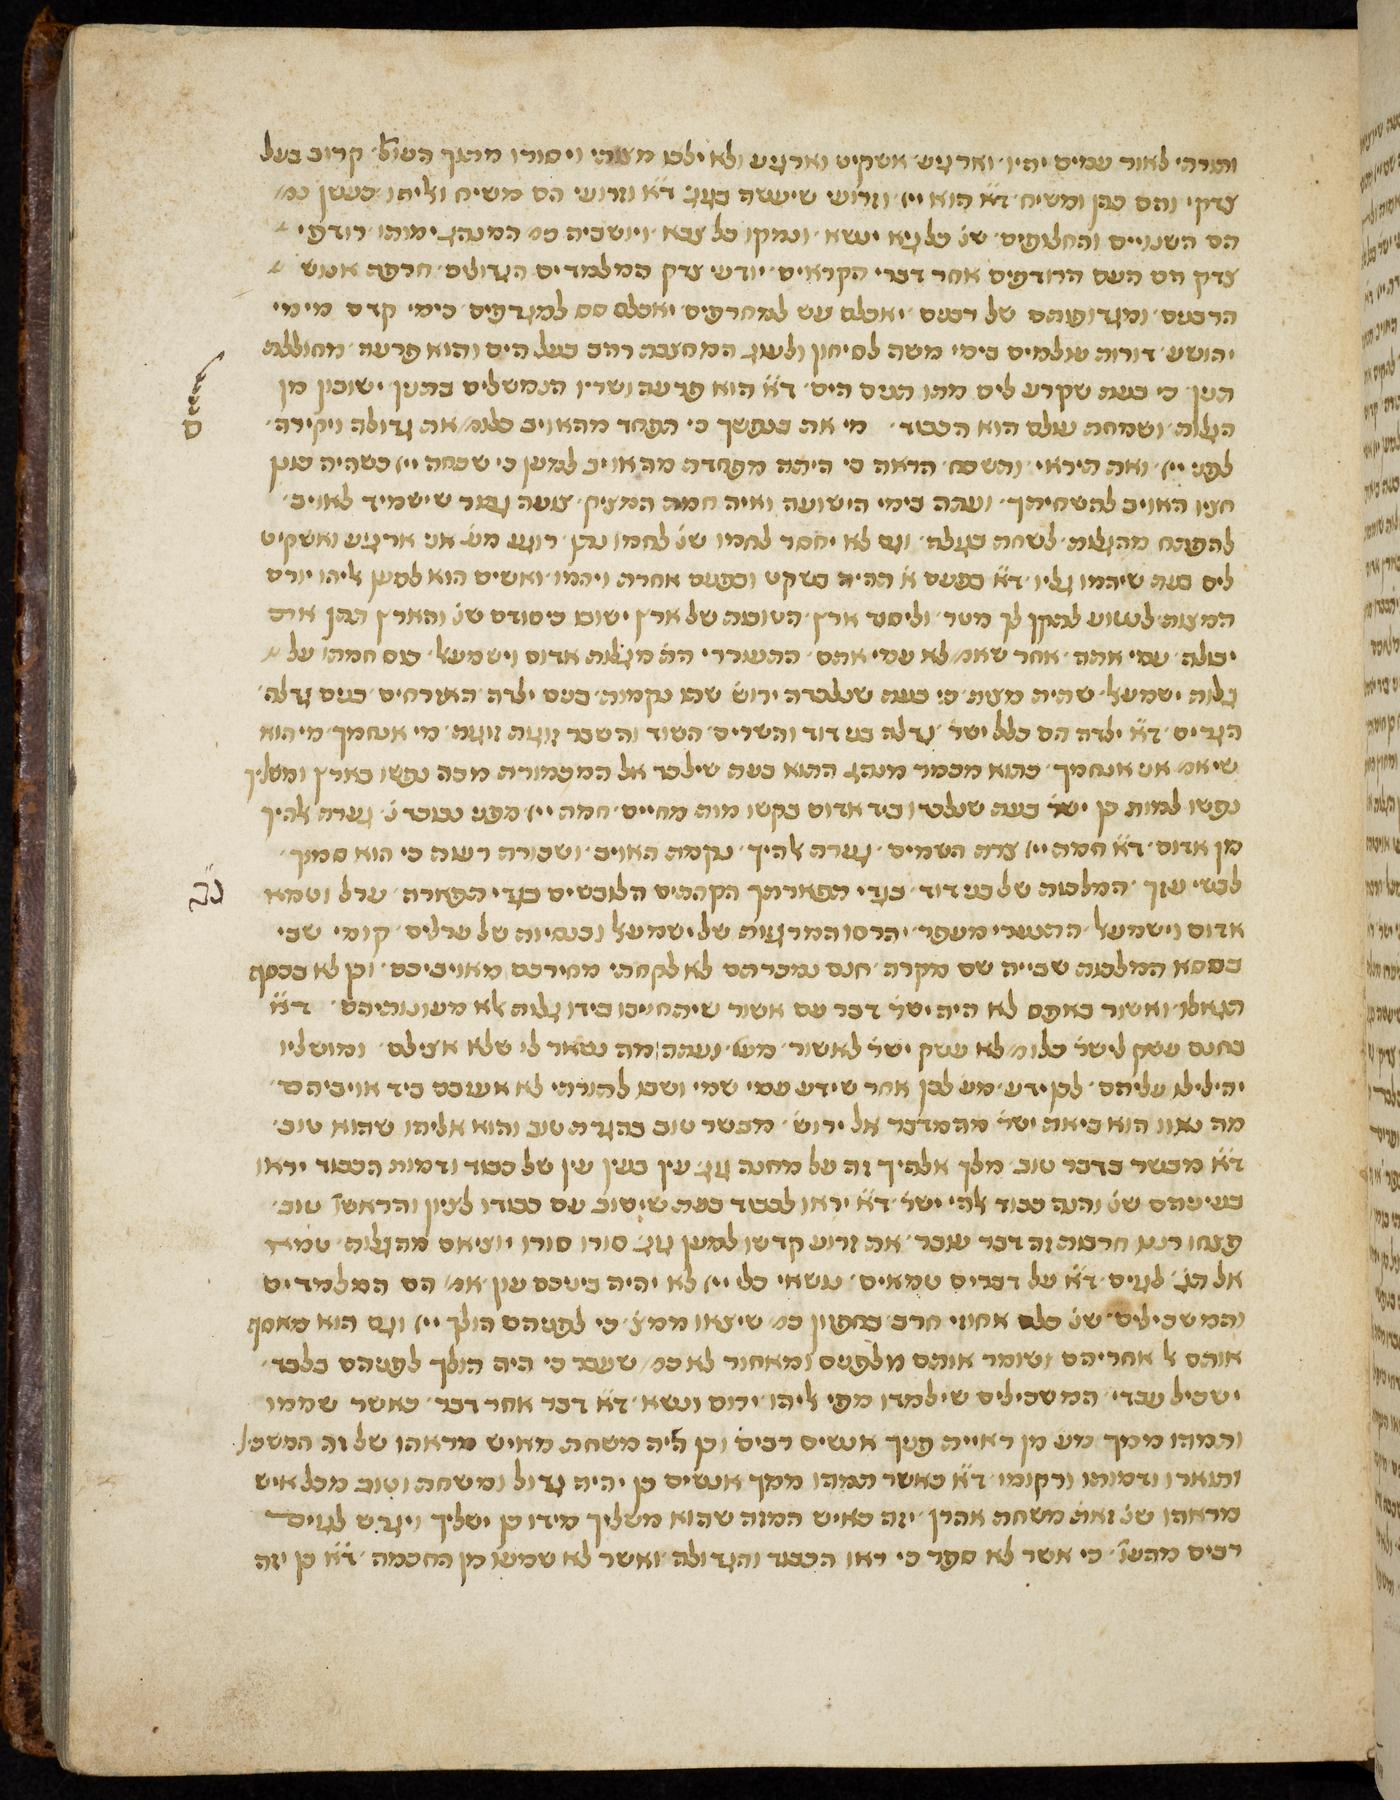 ותורתי לאור עמים יהיו׳ וארגיע׳ אשקיט וארגיע ולא ילכו מצותי ויסורו מתוך העול׳ קרוב בעל
צדקי והם כהן ומשיח׳ ד״א הוא ייי׳ וזרועי שיעשה כענ׳ ד״א וזרועי הם משיח ואליהו׳ כעשן נמ׳
הם השנויים והחלופים׳ שנ׳ כל גיא ינשא׳ ונמקו כל צבא׳ ויושביה כמ׳ המינהג ימותו׳ רודפי
צדק הם העם הרודפים אחר דברי הקראים׳ יודעי צדק המלמדים הגדולים׳ חרפת אנוש
הרבנים׳ ומגדופותם של רבנים׳ יאכלם עש למחרפים׳ יאכלם סס למגדפים׳ כימי קדם מימי
יהושע׳ דורות עולמים בימי משה לסיחון ולעוג המחצבת רהב בעל הים והוא פרעה׳ מחוללת
תנין׳ כי בעת שקרע לים מתו תנים הים׳ ד״א הוא פרעה ושריו הנמשלים בתנין׳ ישובון מן
הגלות׳ ושמחת עולם הוא הכבוד׳ מי את בנפשך כי תפחד מהאויב כלומ׳ את גדולה ויקירה׳
לפני ייי׳ ואת תיראי׳ ותשכח׳ הראה כי היתה מפחדת מהאויב למען כי שכחה ייי׳ כשהיה כונן
חציו האויב להשחיתך׳ ועתה בימי הישועה ואיה חמת המציק׳ צועה גבור שישמיד לאויב׳
להפתח מהגלות׳ לשחת בגלה׳ וגם לא יחסר לחמו שנ׳ לחמו נתן׳ רוגע מע׳ אני ארגיע ואשקיט
לים בעת שיהמו גליו׳ ד״א בפעם א׳ תהיה בשקט ובפעם אחרת ויהמו׳ ואשים הוא למען אליהו יורם
המצות׳ לנטוע לתקן לך מטר׳ וליסוד ארץ׳ הטובות של ארץ ישובו כיסודם שנ׳ והארץ תתן את
יבולה׳ עמי אתה׳ אחר שאמ׳ לא עמי אתם׳ התעוררי הת׳ מגלות אדום וישמעאל׳ כוס חמתו על
גלות ישמעאל׳ שתית מצית׳ כי בעת שנלכדה ירוש׳ שתו נקמות׳ בנים ילדה׳ האזרחים׳ בנים גדלה׳
הגרים׳ ד״א ילדה הם כלל ישר׳ גדלה בני דוד והשרים׳ השוד והשבר זועת זועת׳ מי אנחמך׳ מי הוא
שיאמ׳ אני אנחמך׳ כתוא מכמר מנהג התוא בעת שילכד אל המכמורת מכה נפשו בארץ ומשליך
נפשו למות כן ישר׳ בעת שנלכדו ביד אדום בקשו מות מחיים׳ חמת ייי׳ מפני נבוכד נ׳ גערת אלהיך
מן אדום׳ ד״א חמת ייי׳ צרת השמים׳ גערת אלהיך׳ נקמת האויב׳ ושכורת רעות כי הוא סמוך׳
לבשי עזך׳ המלכות של בני דוד׳ בגדי תפארתך הקהתים הלובשים בגדי תפארת׳ ערל וטמא
אדום וישמעאל׳ התנערי מעפר׳ יהרסו המרגעות של ישמעאל וכנסיות של ערלים׳ קומי שבי
בכסא המלכות׳ שבייה שם מקרה׳ חנם נמכרתם לא לקחתי מחירכם מאויביכם׳ וכן לא בכסף
תגאלו׳ ואשור באפס לא היה ישר׳ דבר עם אשור שיתחייבו בידו גלות אלא מעונותיהם׳ ד״א
בחנם עשק לישר׳ כלומ׳ לא עשק ישר׳ לאשור׳ מע׳ ועתה מה נשאר לי שלא אצילם׳ ומושליו
יהילילו עליהם׳ לכן ידע׳ מע׳ לכן אחר שידע עמי שמי ושבו לתורתי לא אעזבם ביד אויביהם׳
מה נאוו הוא ביאת ישר׳ מהמדבר אל ירוש׳ מבשר טוב כהגדת טוב והוא אליהו שהוא טוב׳
ד״א מבשר בדבר טוב׳ מלך אלהיך זה על מחנה גוג׳ עין בעין עין של כבוד ודמות הכבוד יראו
בעיניהם שנ׳ והנה כבוד אלהי ישר׳ ד״א יראו לכבוד בעת שישוב עם כבודו לציון והראשו׳ טוב׳
פצחו רננו חרבות זה דבר עובר׳ את זרוע קדשו למען גוג׳ סורו סורו יוציאם מהגלות׳ טמא
אל תג׳ לגוים׳ ד״א על דברים טמאים׳ נושאי כלי ייי׳ לא יהיה ביניכם עון׳ אמ׳ הם המלמדים
והמשכילים׳ שנ׳ כלם אחוזי חרב׳ בחפזון כמ׳ שיצאו ממצ׳ כי לפניהם הולך ייי׳ וגם הוא מאסף
אותם לאחריהם ושומר אותם מלפנים ומאחור לא כמ׳ שעבר כי היה הולך לפניהם בלבד׳
ישכיל עבדי׳ המשכילים שילמדו מפי אליהו׳ ירום ונשא׳ ד״א דבר אחר דבר׳ כאשר שממו
ותמהו ממך׳ מע׳ מן ראיית פניך אנשים רבים׳ וכן היה משחת מאיש מראהו של זה המשכיל׳
ותוארו ודמותו ורקומו׳ ד״א כאשר תמהו ממך אנשים כן יהיה גדול ומשחת וטוב מכל איש
מראהו שנ׳ זאת משחת אהרן׳ יזה כאיש המזה שהוא משליך מידו כן ישליך ויגרש לגוים
רבים מהעו׳׳ כי אשר לא ספר כי ראו הכבוד והגדולה׳ ואשר לא שמעו מן החכמה׳ ד״א כן יזה
ס
נב